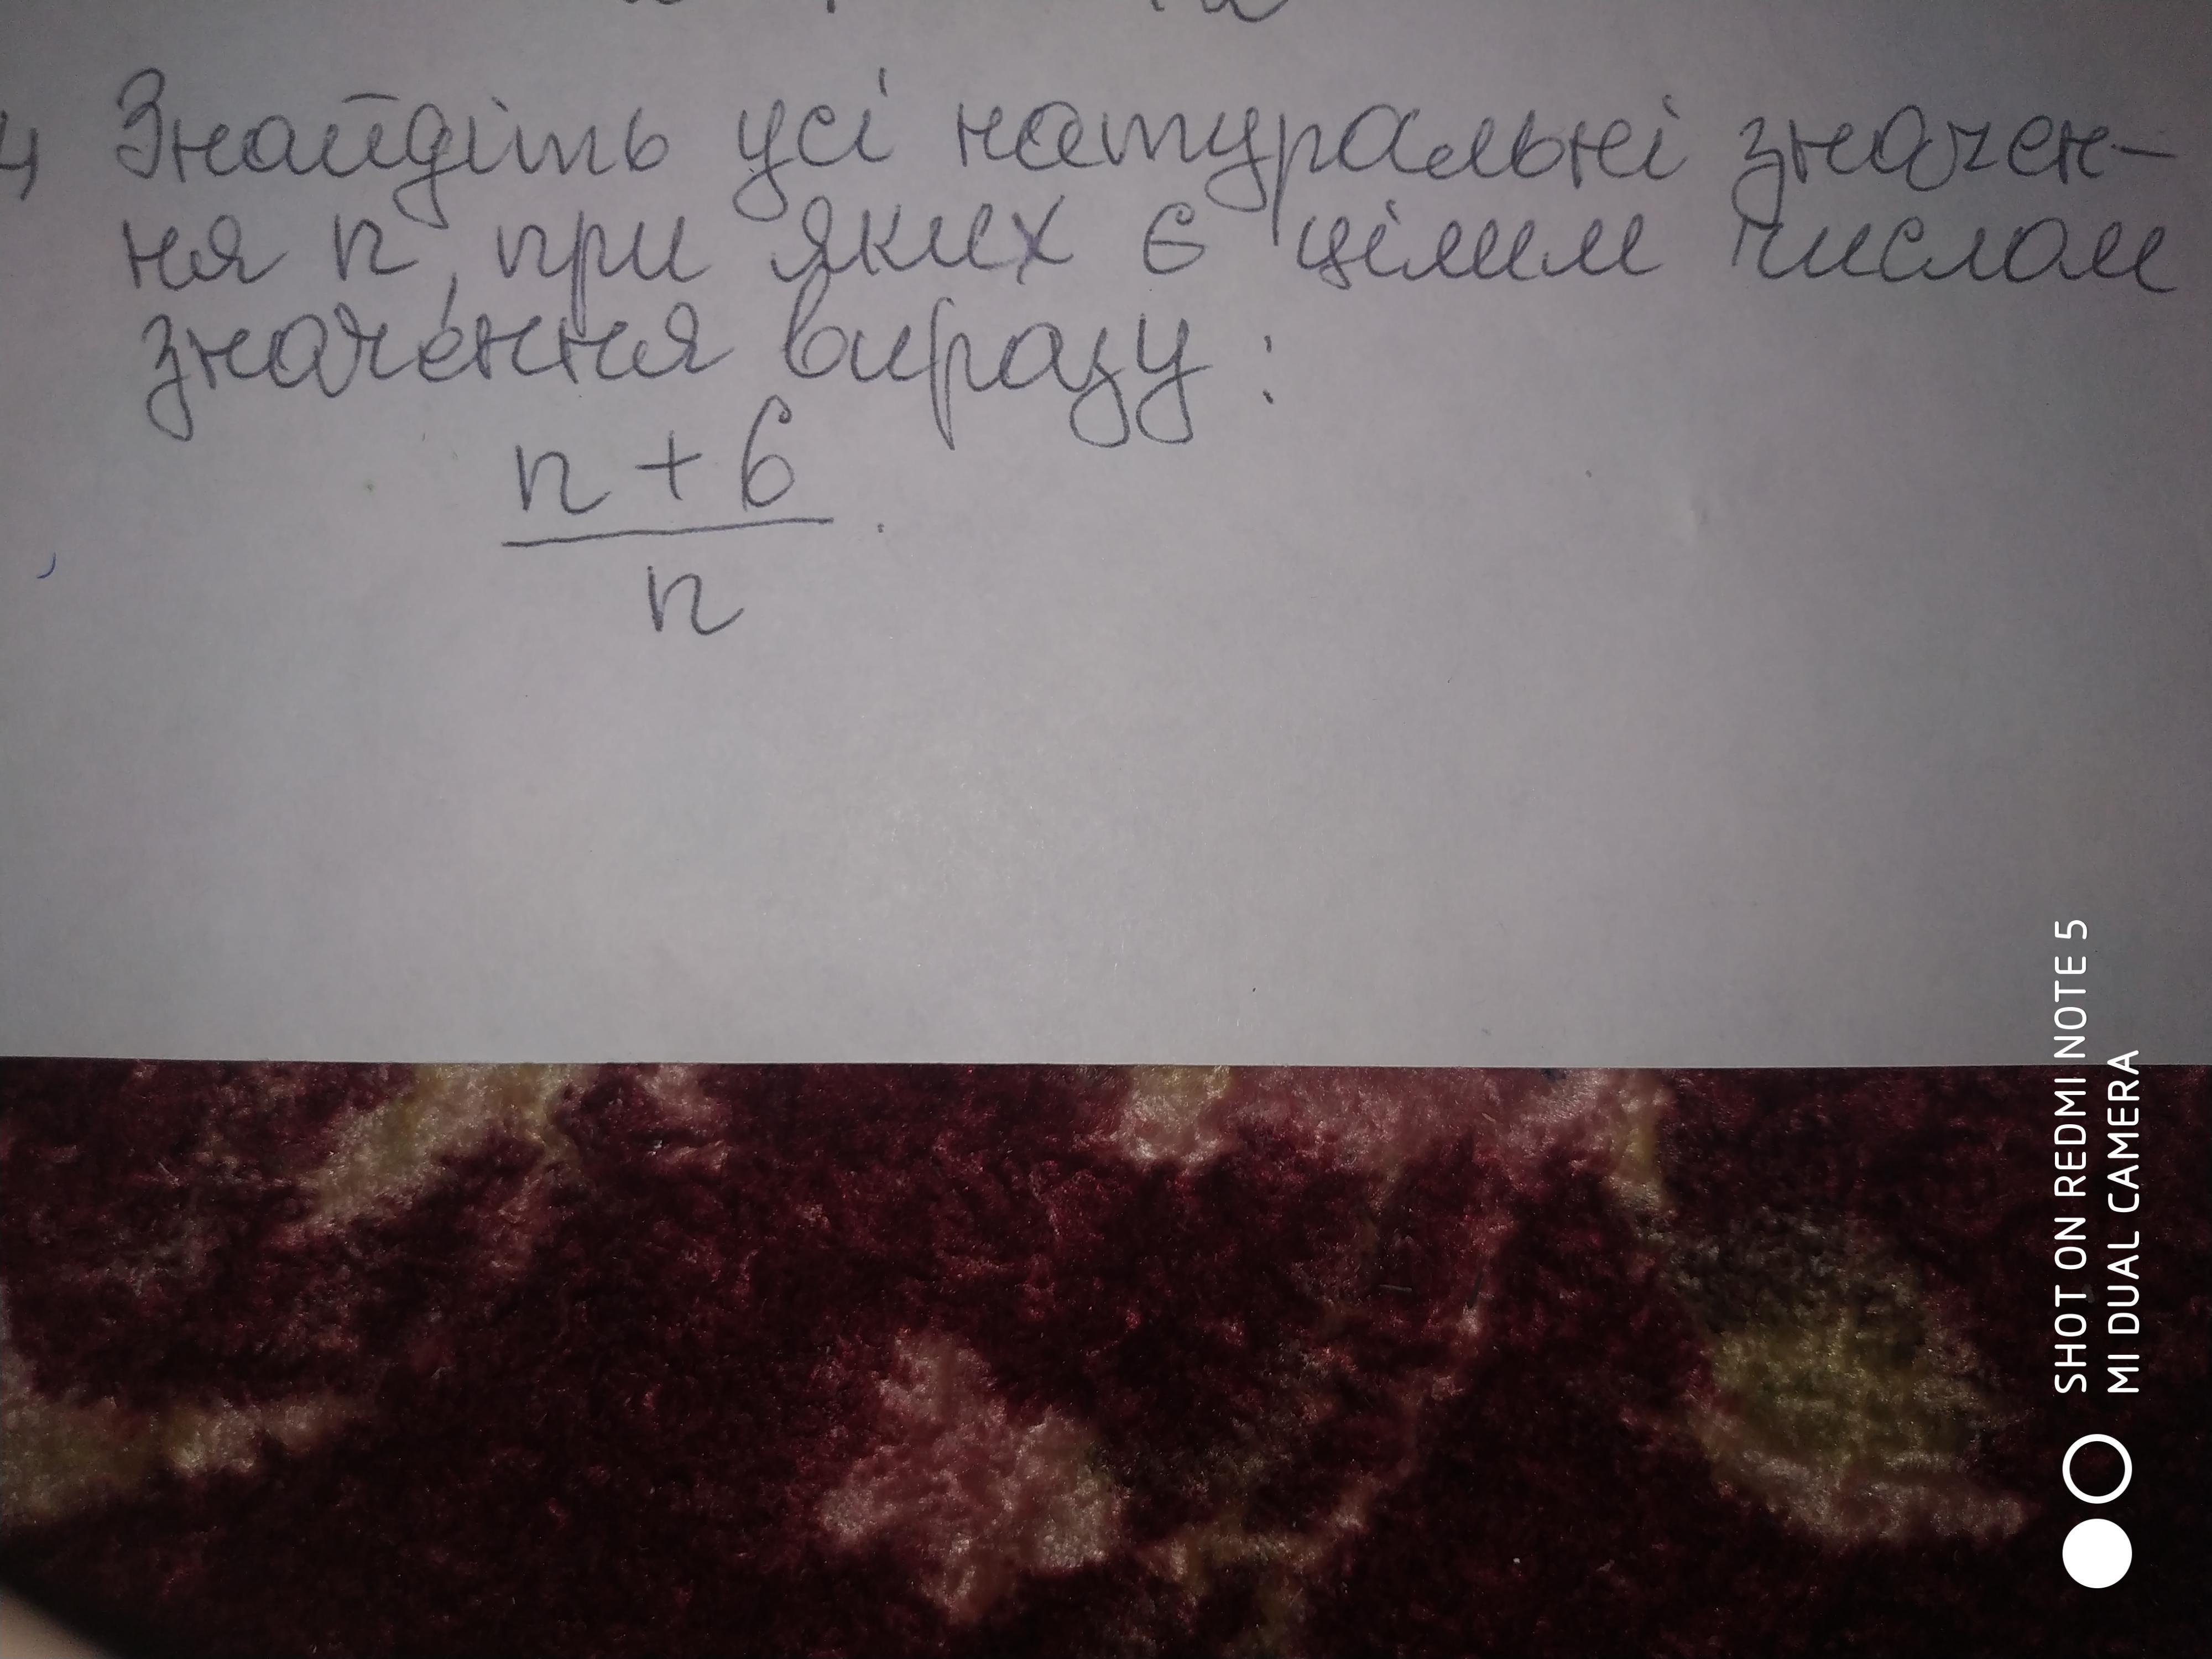 4 Знайдіть усі натуральні значен-
ня n, при яких є цілим числом
значення виразу:
n + 6
n
SHOT ON REDMI NOTE 5
MI DUAL CAMERA